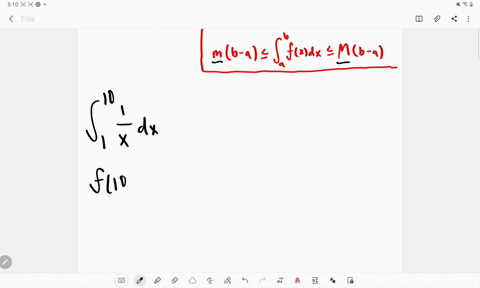 5:10
m(b-a) ≤ ∫_a^b f(x)dx ≤ M(b-a)
∫_1^10 1/x dx
f(10